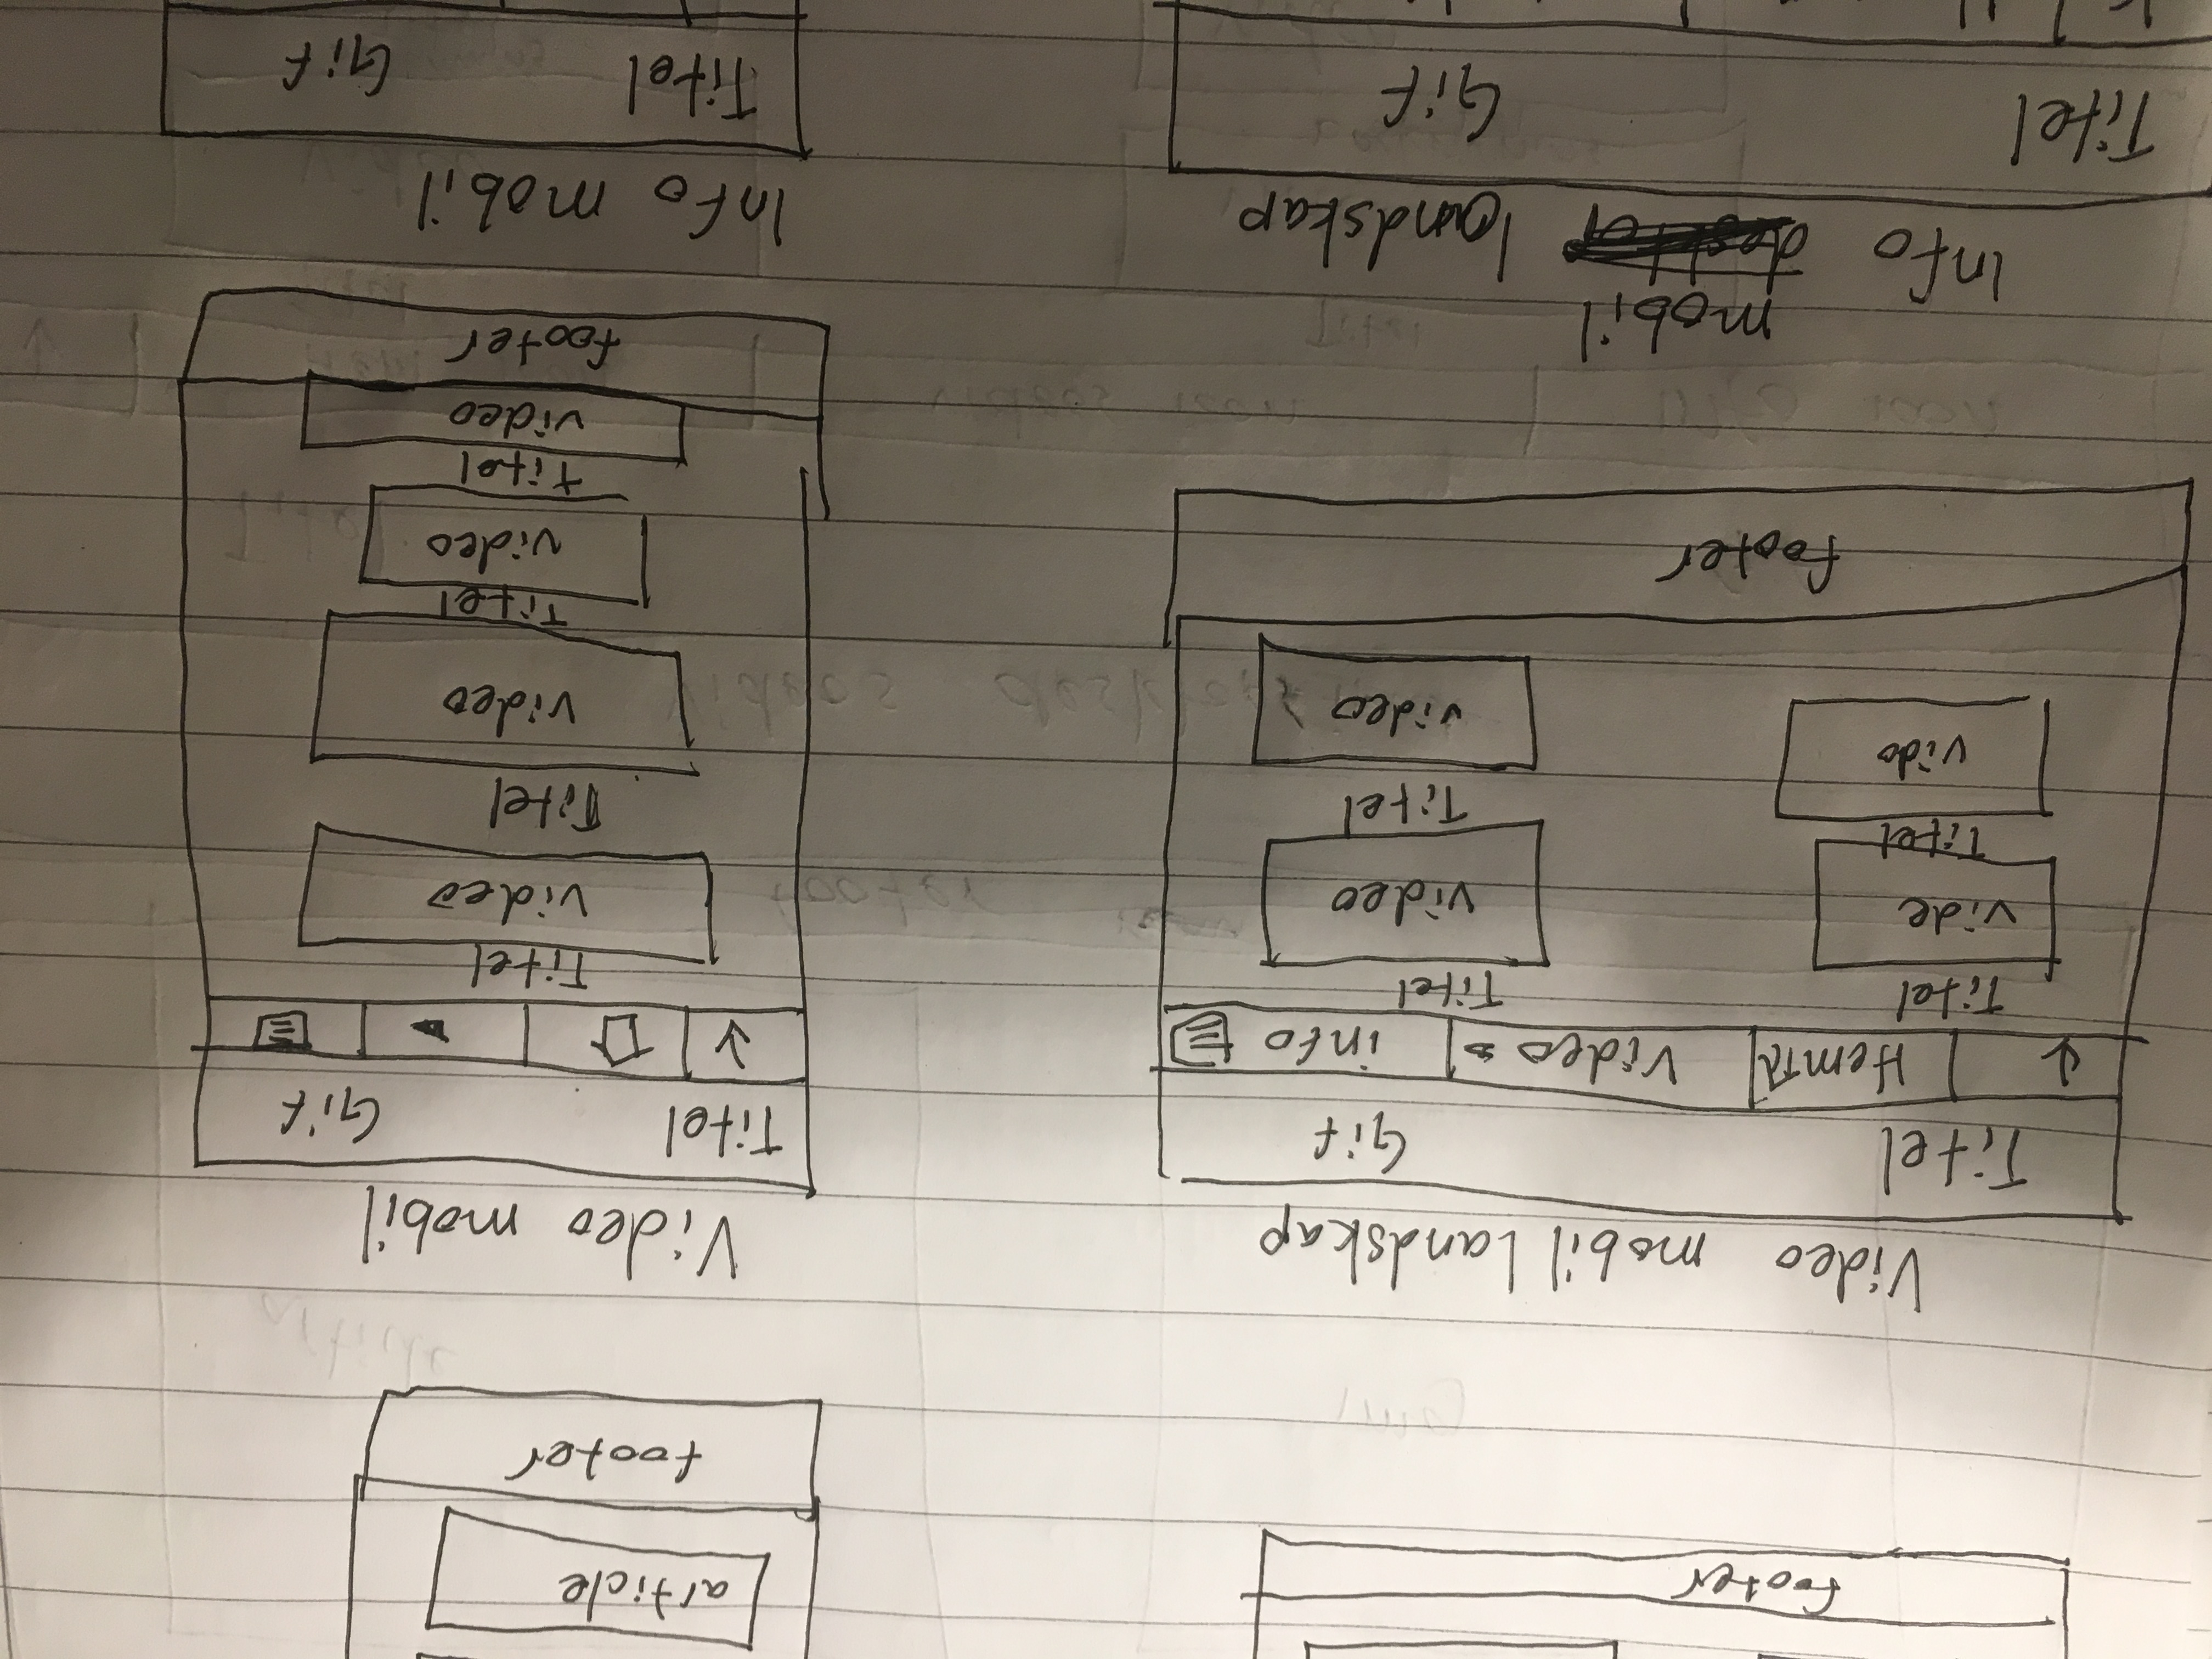 footer
article
footer
Video mobil landskap
Titel Gif
Hem Video info
Titel Titel
vide video
Titel Titel
vido video
footer
Video mobil
Titel Gif
Titel
video
Titel
video
Titel
video
Titel
video
footer
mobil
Info landskap
Titel Gif
Info mobil
Titel Gif